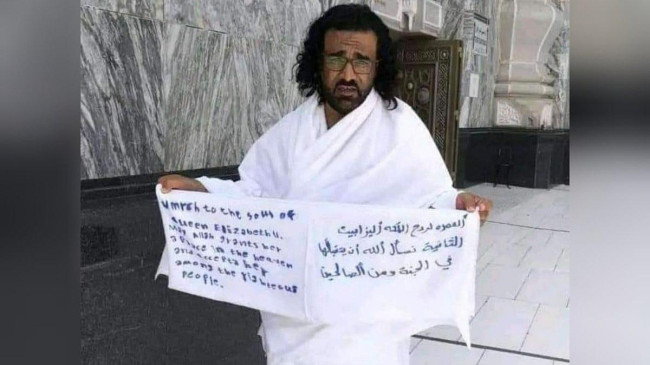 Umrah to the soul of
Queen Elizabeth II.
May Allah grants her
a place in the heaven
and accepts her
among the righteous
people.
العمره لروح الملكه اليزابيث
الثانية نسأل الله أن يتقبلها
في الجنة ومن الصالحين